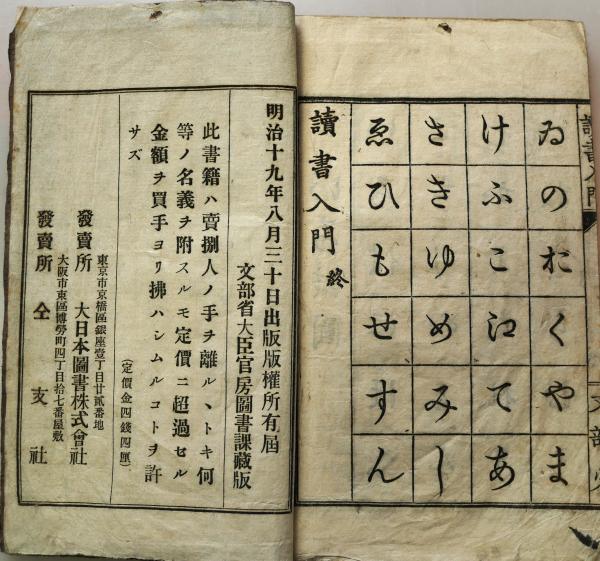 讀書入門
文部省
ゐのおくやま
けふこえてあ
さきゆめみし
ゑひもせすん
讀書入門 終
明治十九年八月三十日出版版權所有屆
文部省大臣官房圖書課藏版
此書籍ハ賣捌人ノ手ヲ離ルヽトキ何
等ノ名義ヲ附スルモ定價ニ超過セル
金額ヲ買手ヨリ拂ハシムルコトヲ許
サズ
(定價金四錢四厘)
東京市京橋區銀座壹丁目廿貳番地
發賣所 大日本圖書株式會社
大阪市東區博勞町四丁目拾七番屋敷
發賣所 仝 支 社